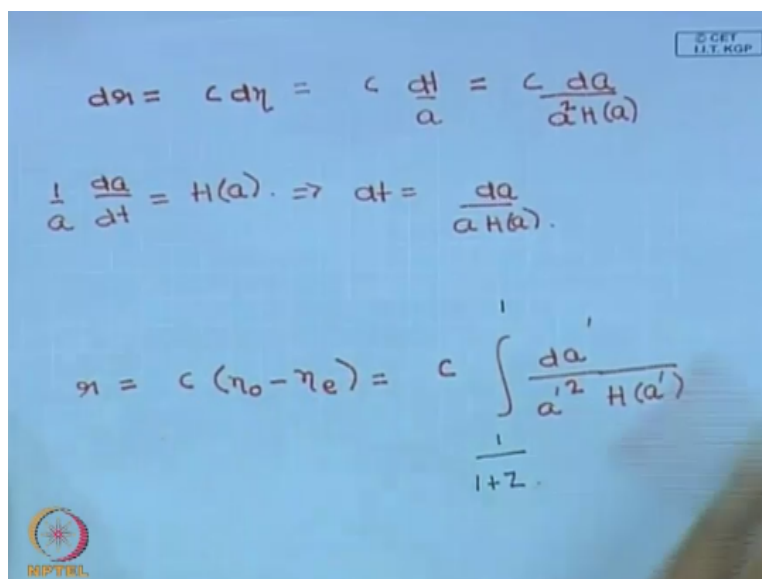 © CET
I.I.T. KGP
dr = c dη = c dt/a = c da/a²H(a)
1/a da/dt = H(a). => dt = da/a H(a).
r = c (η₀ - ηe) = c ∫_{1/1+z}^{1} da'/a'² H(a')
NPTEL